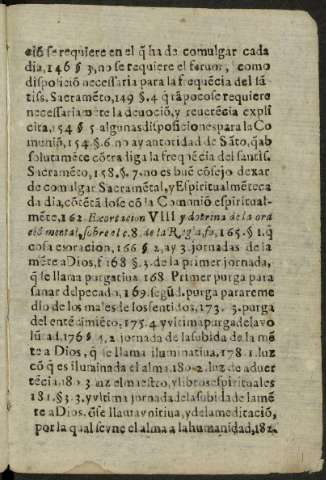 ciõ se requiere en el q̃ ha de comulgar cada
dia, 146 § 3, no se requiere el feruor, como
disposiciõ necessaria para la frequẽcia del sã-
tiss. Sacramẽto, 149 §. 4 q̃ tãpoco se requiere
necessariamẽte la deuociõ, y reuerẽcia expli
cita, 154 § 5 algunas disposiciones para la Co
muniõ, 154. §. 6 no ay autoridad de Sãto, q̃ ab
solutamẽte cõtradiga la frequẽcia del santis.
Sacramẽto, 158. §. 7. no es buẽ cõsejo dexar
de comulgar Sacramẽtal, y Espiritualmẽte ca
da dia, cõtẽtãdose cõ la Comuniõ espiritual-
mẽte, 162. Exortacion VIII y dotrina de la ora
ciõ mental, sobre el c. 8. de la Regla, fo, 165. § 1. q̃
cosa es oracion, 166 § 2, ay 3. jornadas de la
mẽte a Dios, f 168 § 3. de la primer jornada,
q̃ se llama purgatiua 168. Primer purga para
sanar del pecado, 169. segũd. purga para reme
dio de los males de los sentidos, 173. 3. purga
del entẽdimiẽto, 175. 4 y vltima purga de la vo
lũtad. 176 § 4, 2 jornada de la subida de la mẽ
te a Dios, q̃ se llama iluminatiua, 178. 1. luz
cõ que es iluminada el alma. 180. 2. luz de aduer
tẽcia, 180. 3. luz el maestro, y libros espirituales
181. §. 3. y vltima jornada de la subida de la mẽ
te a Dios, q̃ se llama vnitiua, y de la meditaciõ,
por la qual se vne el alma a la humanidad, 182.